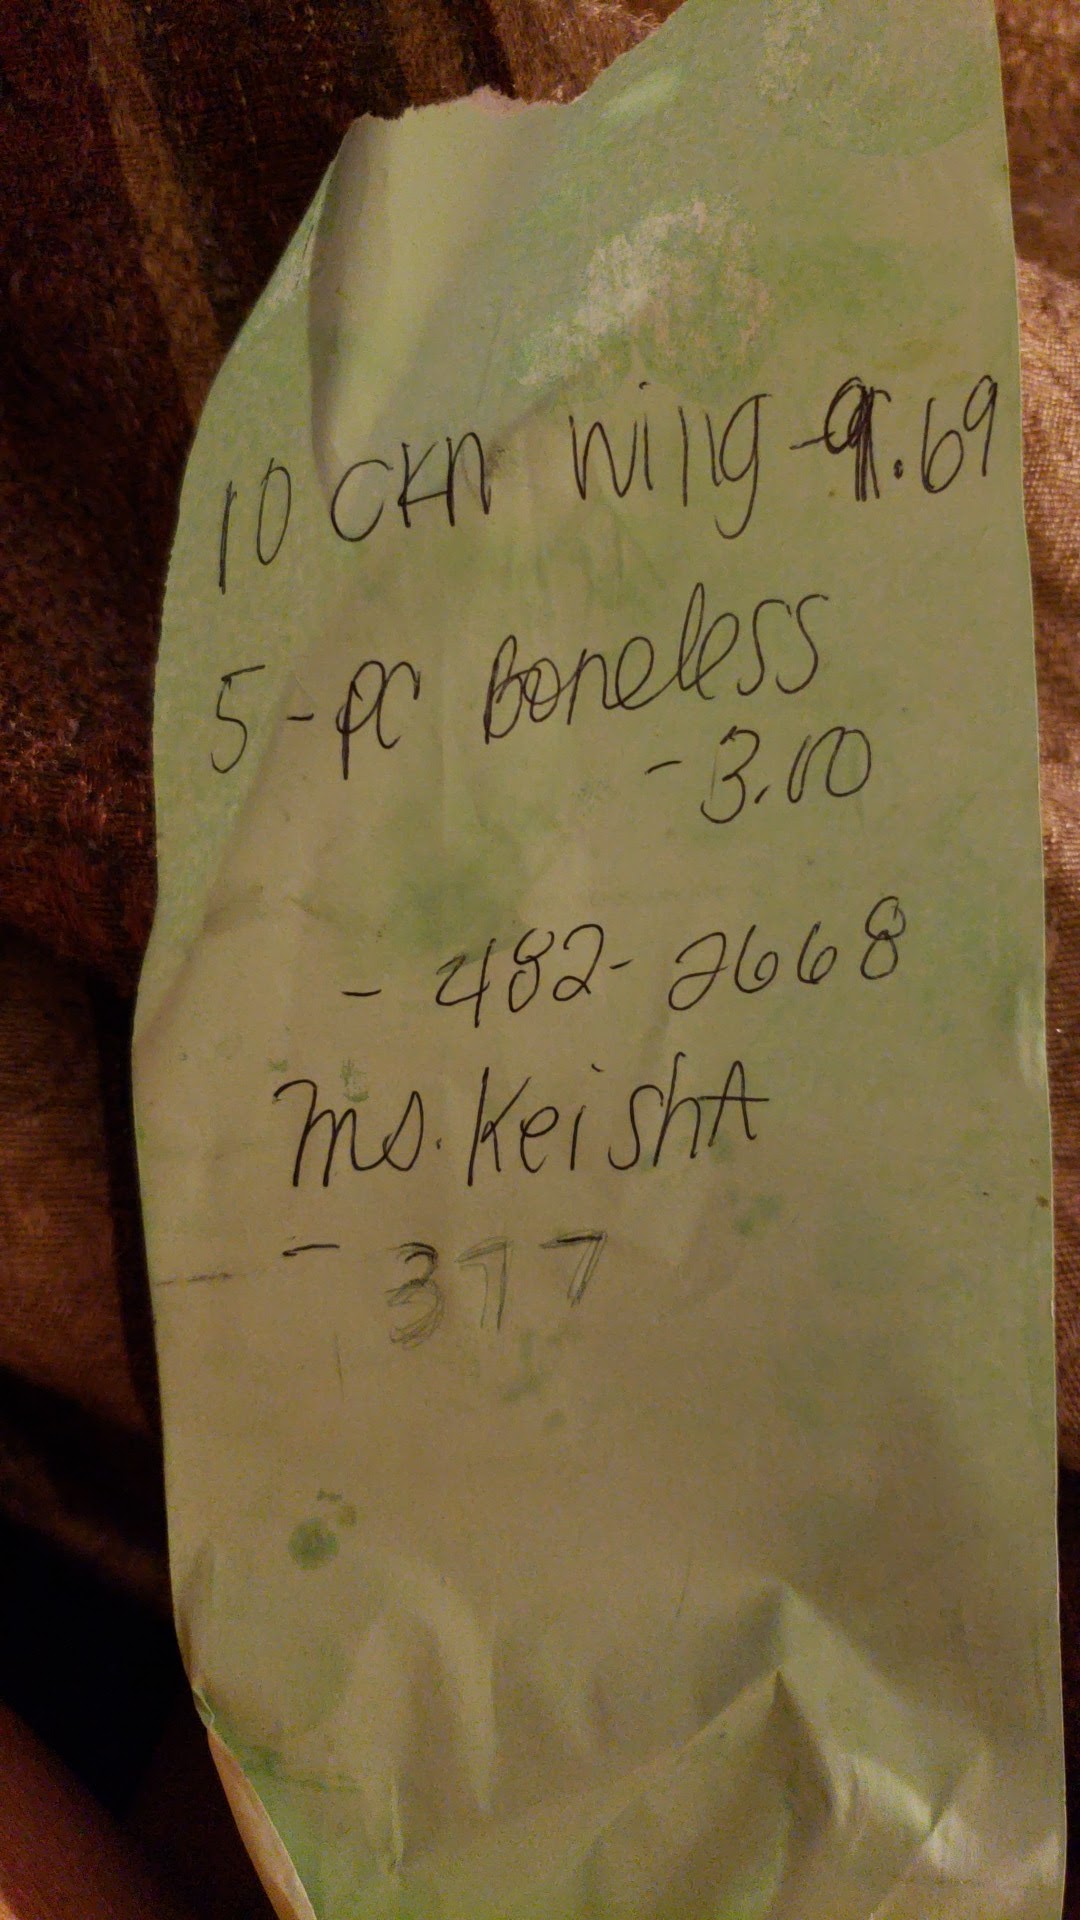 10 CKN Wing - 9.69
5 - PC Boneless
- 3.00
- 482-2668
Ms. KeishA
- 377